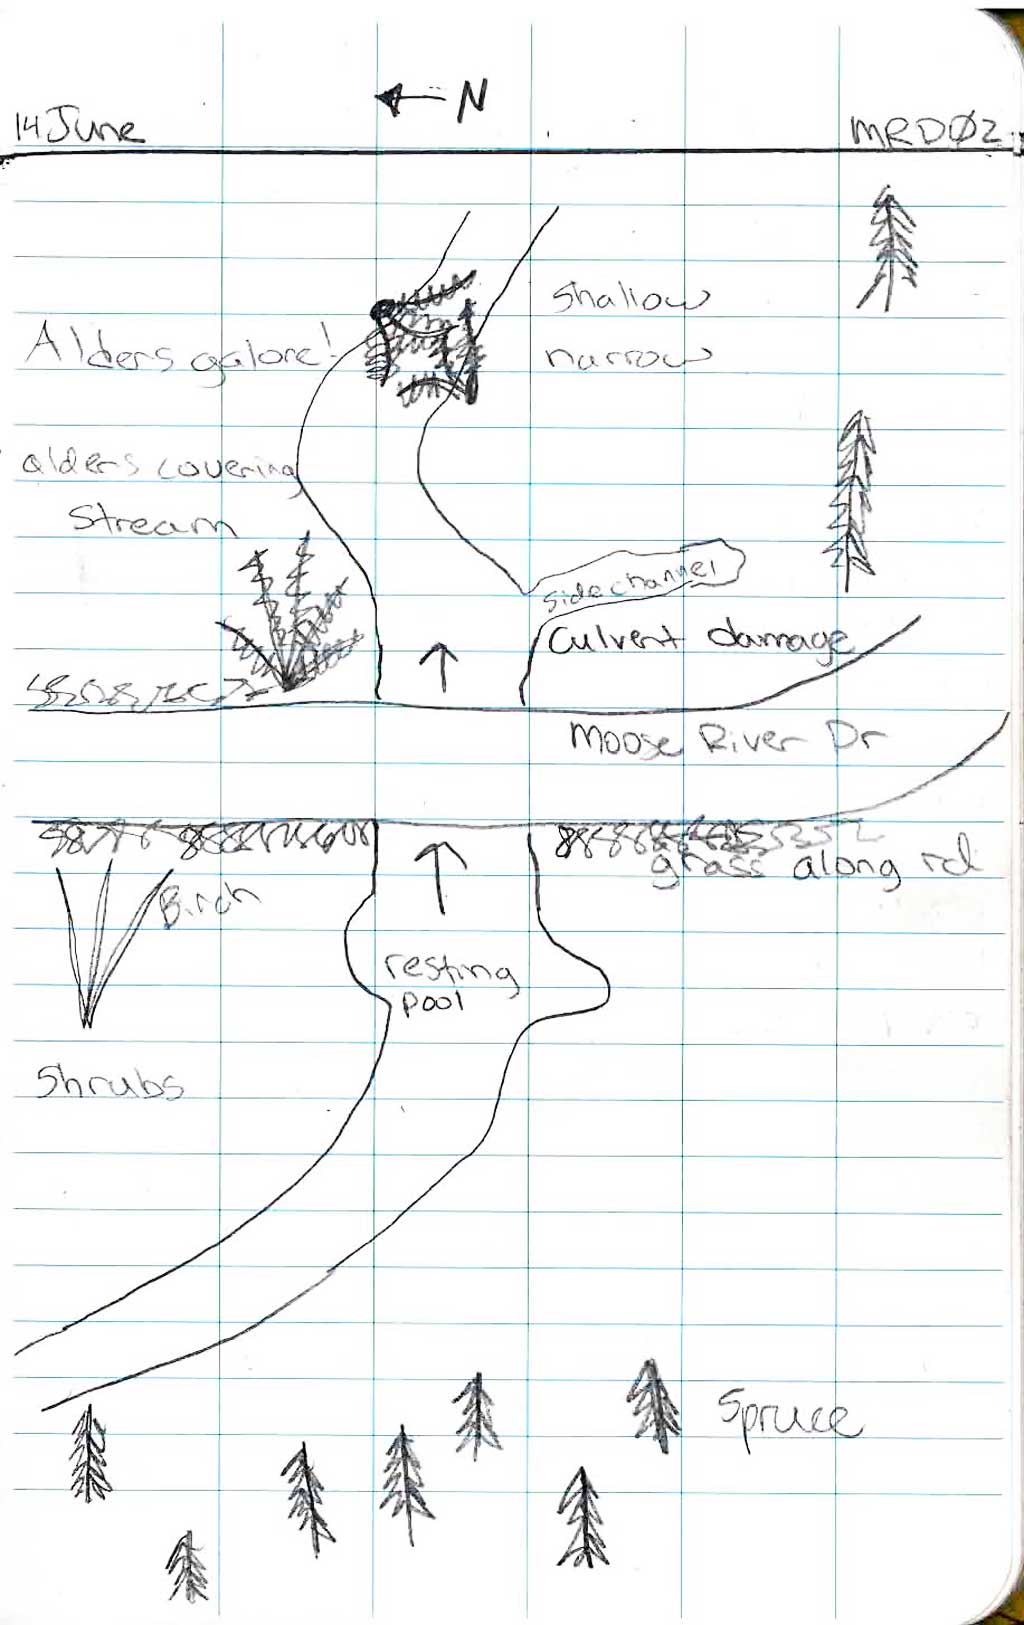 N
14 June
MRDØ2
Shallow
narrow
Alders galore!
alders covering
Stream
Side channel
Culvert damage
Moose River Dr
grass along rd
Birch
resting
pool
Shrubs
Spruce